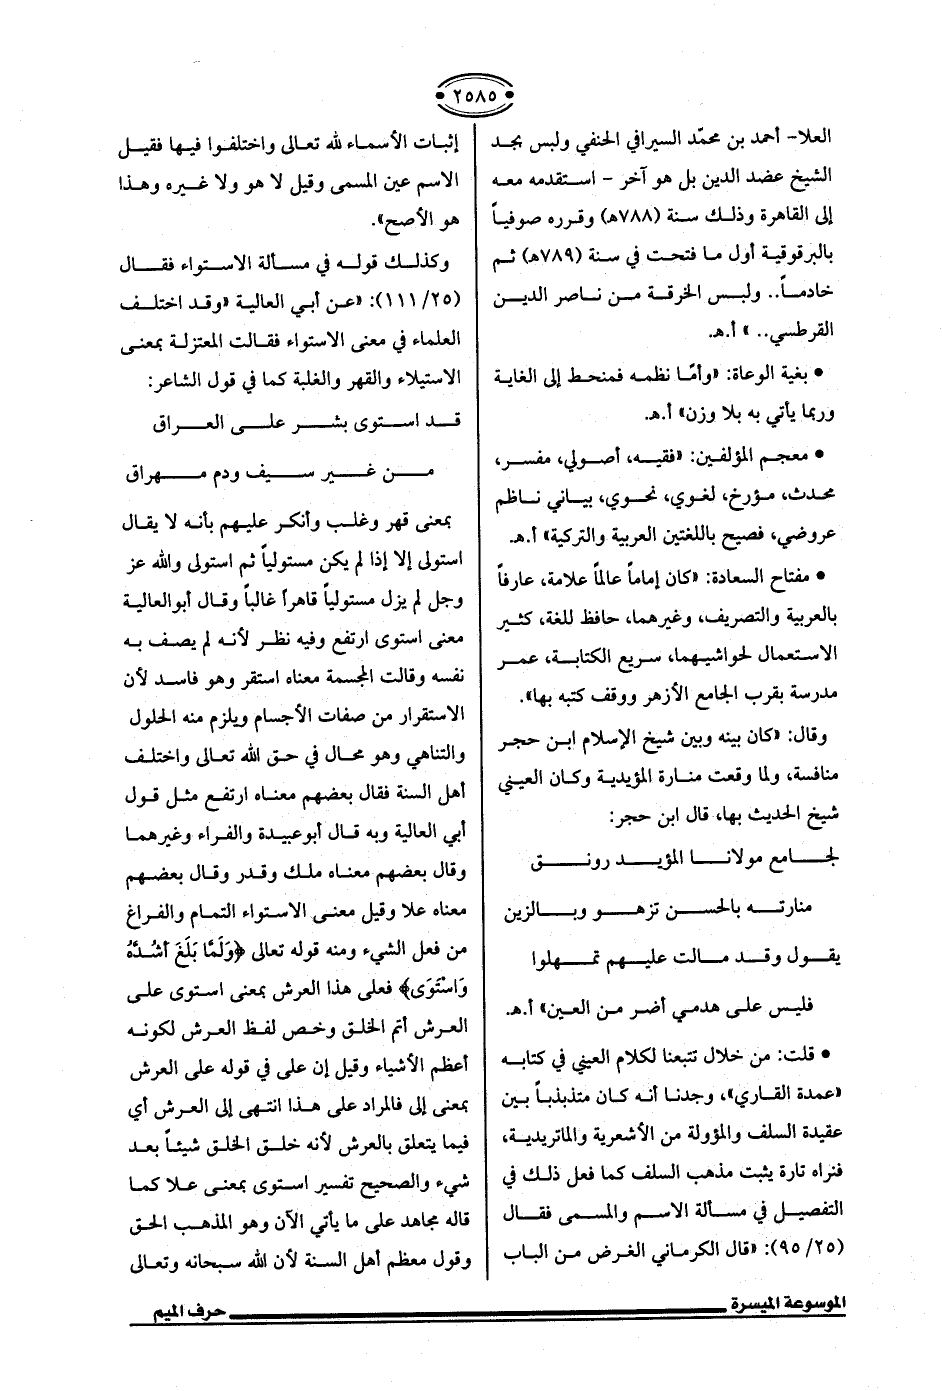 ٢٥٨٥
العلا- أحمد بن محمّد السيرافي الحنفي وليس بجد
الشيخ عضد الدين بل هو آخر - استقدمه معه
إلى القاهرة وذلك سنة (٧٨٨هـ) وقرره صوفياً
بالبرقوقية أول ما فتحت في سنة (٧٨٩هـ) ثم
خادماً.. ولبس الخرقة من ناصر الدين
القرطسي.. » أ.هـ.
• بغية الوعاة: «وأمّا نظمه فمنحط إلى الغاية
وربما يأتي به بلا وزن» أ.هـ.
• معجم المؤلفين: «فقيه، أصولي، مفسر،
محدث، مؤرخ، لغوي، نحوي، بياني ناظم
عروضي، فصيح باللغتين العربية والتركية» أ.هـ.
• مفتاح السعادة: «كان إماماً عالماً علامة، عارفاً
بالعربية والتصريف، وغيرهما، حافظ للغة، كثير
الاستعمال لحواشيهما، سريع الكتابة، عمر
مدرسة بقرب الجامع الأزهر ووقف كتبه بها».
وقال: «كان بينه وبين شيخ الإسلام ابن حجر
منافسة، ولما وقعت منارة المؤيدية وكان العيني
شيخ الحديث بها، قال ابن حجر:
لجامع مولانا المؤيد رونق
منارته بالحسن تزهو وبالزين
يقول وقد مالت عليهم تمهلوا
فليس على هدمي أضر من العين» أ.هـ.
• قلت: من خلال تتبعنا لكلام العيني في كتابه
«عمدة القاري»، وجدنا أنه كان متذبذباً بين
عقيدة السلف والمؤولة من الأشعرية والماتريدية،
فنراه تارة يثبت مذهب السلف كما فعل ذلك في
التفصيل في مسألة الاسم والمسمى فقال
(٩٥/٢٥): «قال الكرماني الغرض من الباب
إثبات الأسماء لله تعالى واختلفوا فيها فقيل
الاسم عين المسمى وقيل لا هو ولا غيره وهذا
هو الأصح».
وكذلك قوله في مسألة الاستواء فقال
(١١١/٢٥): «عن أبي العالية «وقد اختلف
العلماء في معنى الاستواء فقالت المعتزلة بمعنى
الاستيلاء والقهر والغلبة كما في قول الشاعر:
قد استوى بشر على العراق
من غير سيف ودم مهراق
بمعنى قهر وغلب وأنكر عليهم بأنه لا يقال
استولى إلا إذا لم يكن مستولياً ثم استولى والله عز
وجل لم يزل مستولياً قاهراً غالباً وقال أبوالعالية
معنى استوى ارتفع وفيه نظر لأنه لم يصف به
نفسه وقالت المجسمة معناه استقر وهو فاسد لأن
الاستقرار من صفات الأجسام ويلزم منه الحلول
والتناهي وهو محال في حق الله تعالى واختلف
أهل السنة فقال بعضهم معناه ارتفع مثل قول
أبي العالية وبه قال أبوعبيدة والفراء وغيرهما
وقال بعضهم معناه ملك وقدر وقال بعضهم
معناه علا وقيل معنى الاستواء التمام والفراغ
من فعل الشيء ومنه قوله تعالى ﴿وَلَمَّا بَلَغَ أَشُدَّهُ
وَاسْتَوَى﴾ فعلى هذا العرش بمعنى استوى على
العرش أتم الخلق وخص لفظ العرش لكونه
أعظم الأشياء وقيل إن على في قوله على العرش
بمعنى إلى فالمراد على هذا انتهى إلى العرش أي
فيما يتعلق بالعرش لأنه خلق الخلق شيئاً بعد
شيء والصحيح تفسير استوى بمعنى علا كما
قاله مجاهد على ما يأتي الآن وهو المذهب الحق
وقول معظم أهل السنة لأن الله سبحانه وتعالى
الموسوعة الميسرة
حرف الميم